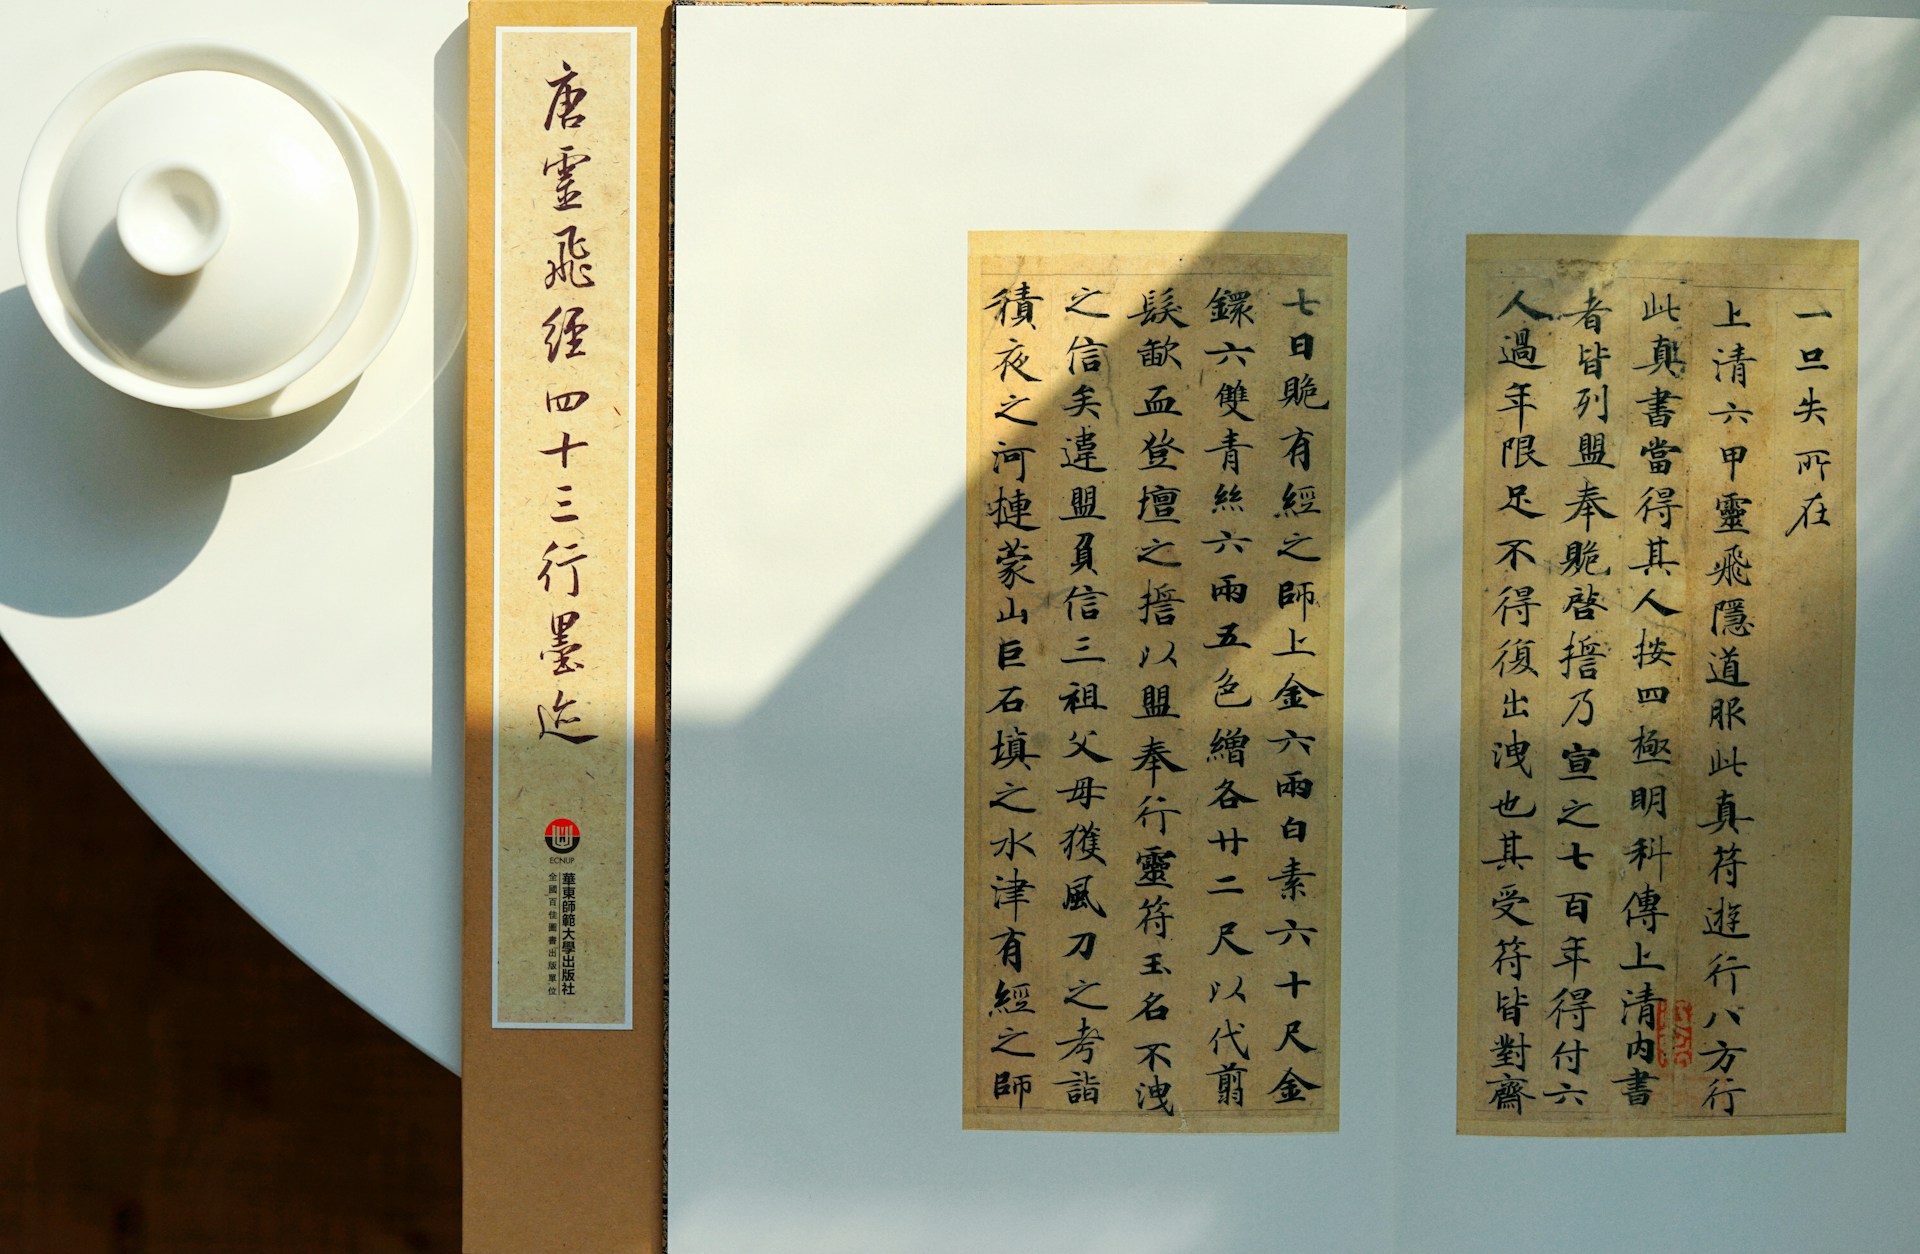 唐靈飛經四十三行墨迹
ECNUP
華東師範大學出版社
全國百佳圖書出版單位
一旦失所在
上清六甲靈飛隱道服此真符遊行八方行
此真書當得其人按四極明科傳上清內書
者皆列盟奉䞈啓誓乃宣之七百年得付六
人過年限足不得復出洩也其受符皆對齋
七日䞈有經之師上金六兩白素六十尺金
鐶六雙青絲六兩五色繒各廿二尺以代翦
髮歃血登壇之誓以盟奉行靈符玉名不洩
之信矣違盟負信三祖父母獲風刀之考詣
積夜之河摙蒙山巨石填之水津有經之師